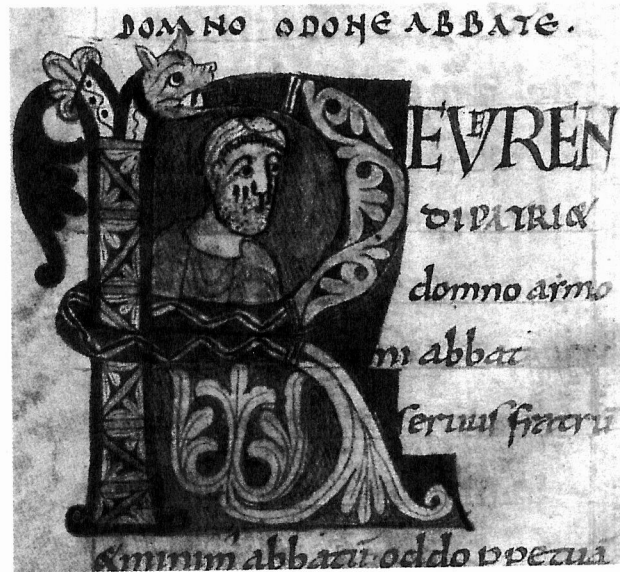 DOMNO ODONE ABBATE.
REVERENDI PATRI &
domno armo
ni abbati
seruus fratrū
& minim' abbatū· oddo ppetuā